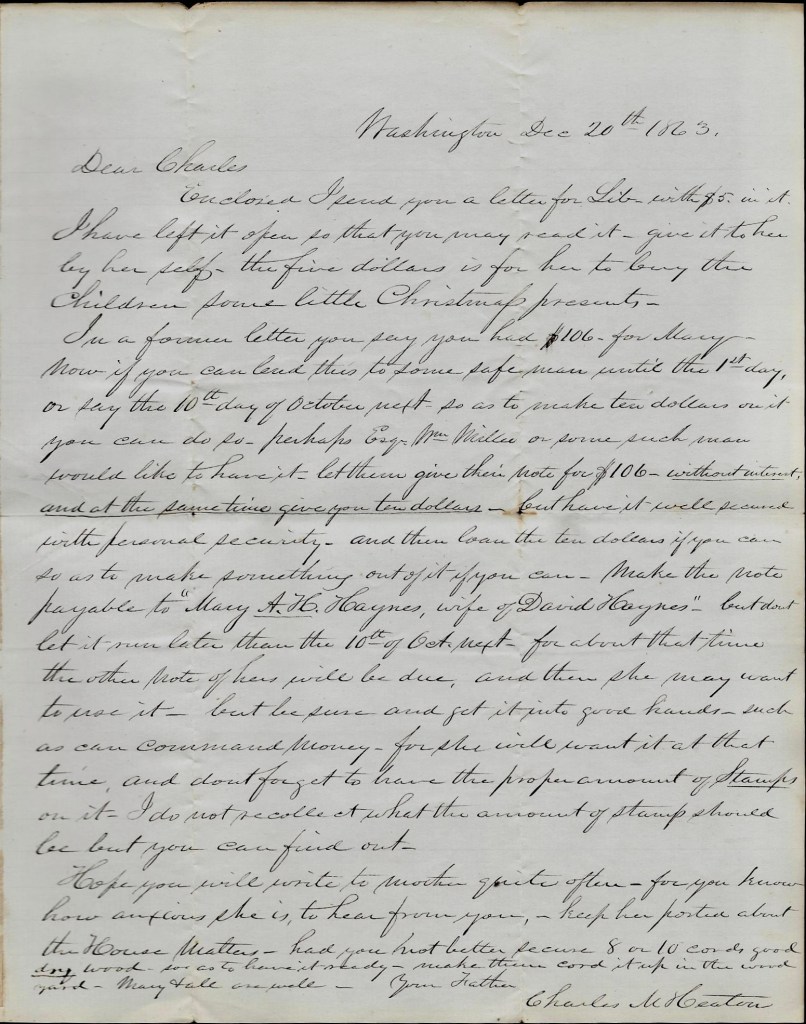 Washington Dec 20th 1863.
Dear Charles
Enclosed I send you a letter for Lib - with $5. in it.
I have left it open so that you may read it - give it to her
by her self - the five dollars is for her to buy the
Children some little Christmas presents -
In a former letter you say you had $106 - for Mary -
Now if you can lend this to some safe man until the 1st day,
or say the 10th day of October next - so as to make ten dollars on it
you can do so - perhaps Esqr Wm Miller or some such man
would like to have it - let them give their note for $106 - without interest,
and at the same time give you ten dollars - but have it well secured
with personal security - and then loan the ten dollars if you can
so as to make something out of it if you can - Make the note
payable to "Mary A. H. Haynes, wife of David Haynes" - but dont
let it run later than the 10th of Oct. next - for about that time
the other note of hers will be due, and then she may want
to use it - but be sure and get it into good hands - such
as can command money - for she will want it at that
time, and dont forget to have the proper amount of Stamps
on it - I do not recollect what the amount of stamp should
be but you can find out -
Hope you will write to mother quite often - for you know
how anxious she is, to hear from you, - keep her posted about
the House Matters - had you not better secure 8 or 10 cords good
dry wood - so as to have it ready - make them cord it up in the wood
yard - Mary & all are well - Your Father
Charles M Heaton